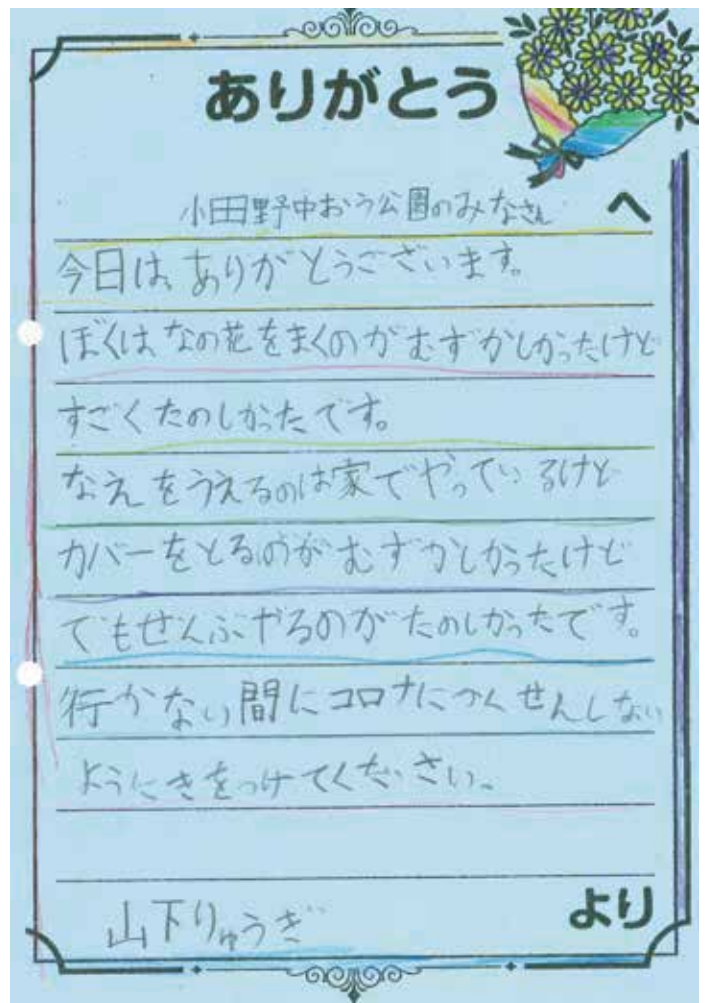 ありがとう
小田野中おう公園のみなさん へ
今日は、ありがとうございます。
ぼくは、なの花をまくのがむずかしかったけど
すごくたのしかったです。
なえをうえるのは家でやっているけど
カバーをとるのがむずかしかったけど
でもぜんぶやるのがたのしかったです。
行かない間にコロナにかんせんしない
ようにきをつけてください。
山下りゅうぎ より